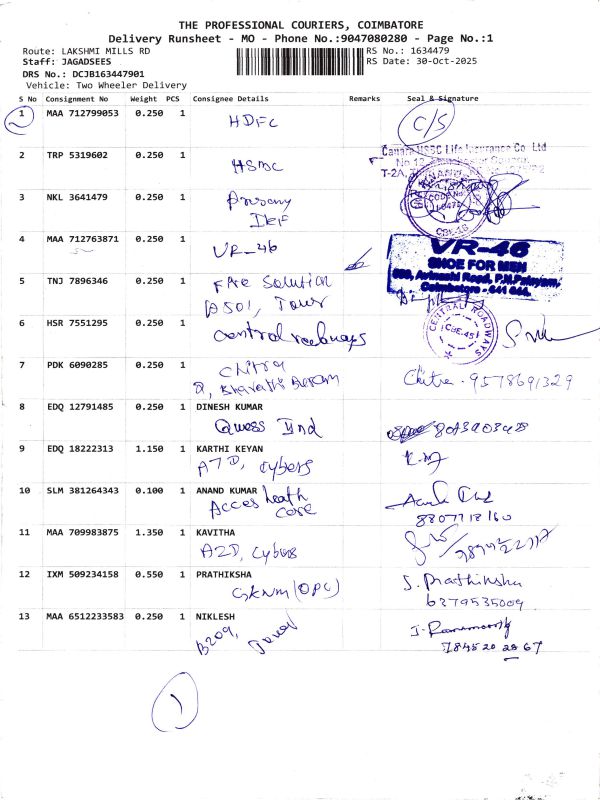 THE PROFESSIONAL COURIERS, COIMBATORE
Delivery Runsheet - MO - Phone No.:9047080280 - Page No.:1
Route: LAKSHMI MILLS RD
RS No.: 1634479
Staff: JAGADSEES
RS Date: 30-Oct-2025
DRS No.: DCJB163447901
Vehicle: Two Wheeler Delivery
S No Consignment No Weight PCS Consignee Details Remarks Seal & Signature
1 MAA 712799053 0.250 1 HDFC C/S
2 TRP 5319602 0.250 1 HSBC
Canara HSBC Life Insurance Co. Ltd
3 NKL 3641479 0.250 1
4 MAA 712763871 0.250 1 VR-46
VR-46
SHOE FOR MEN
Coimbatore - 641
5 TNJ 7896346 0.250 1 Fire Solution
A501, Tower
6 HSR 7551295 0.250 1 Central roadways
CENTRAL ROADWAYS
CBE-45
7 PDK 6090285 0.250 1 Chitra
Chitra. 9578691329
8 EDQ 12791485 0.250 1 DINESH KUMAR
Quess Ind
9 EDQ 18222313 1.150 1 KARTHI KEYAN
A7D, Cybers
10 SLM 381264343 0.100 1 ANAND KUMAR
Acces heath
care
11 MAA 709983875 1.350 1 KAVITHA
A2D, Cybers
12 IXM 509234158 0.550 1 PRATHIKSHA
GKNM (OPC)
S. Prathiksha
6379535009
13 MAA 6512233583 0.250 1 NIKLESH
B209, Tower
78452 02867
1